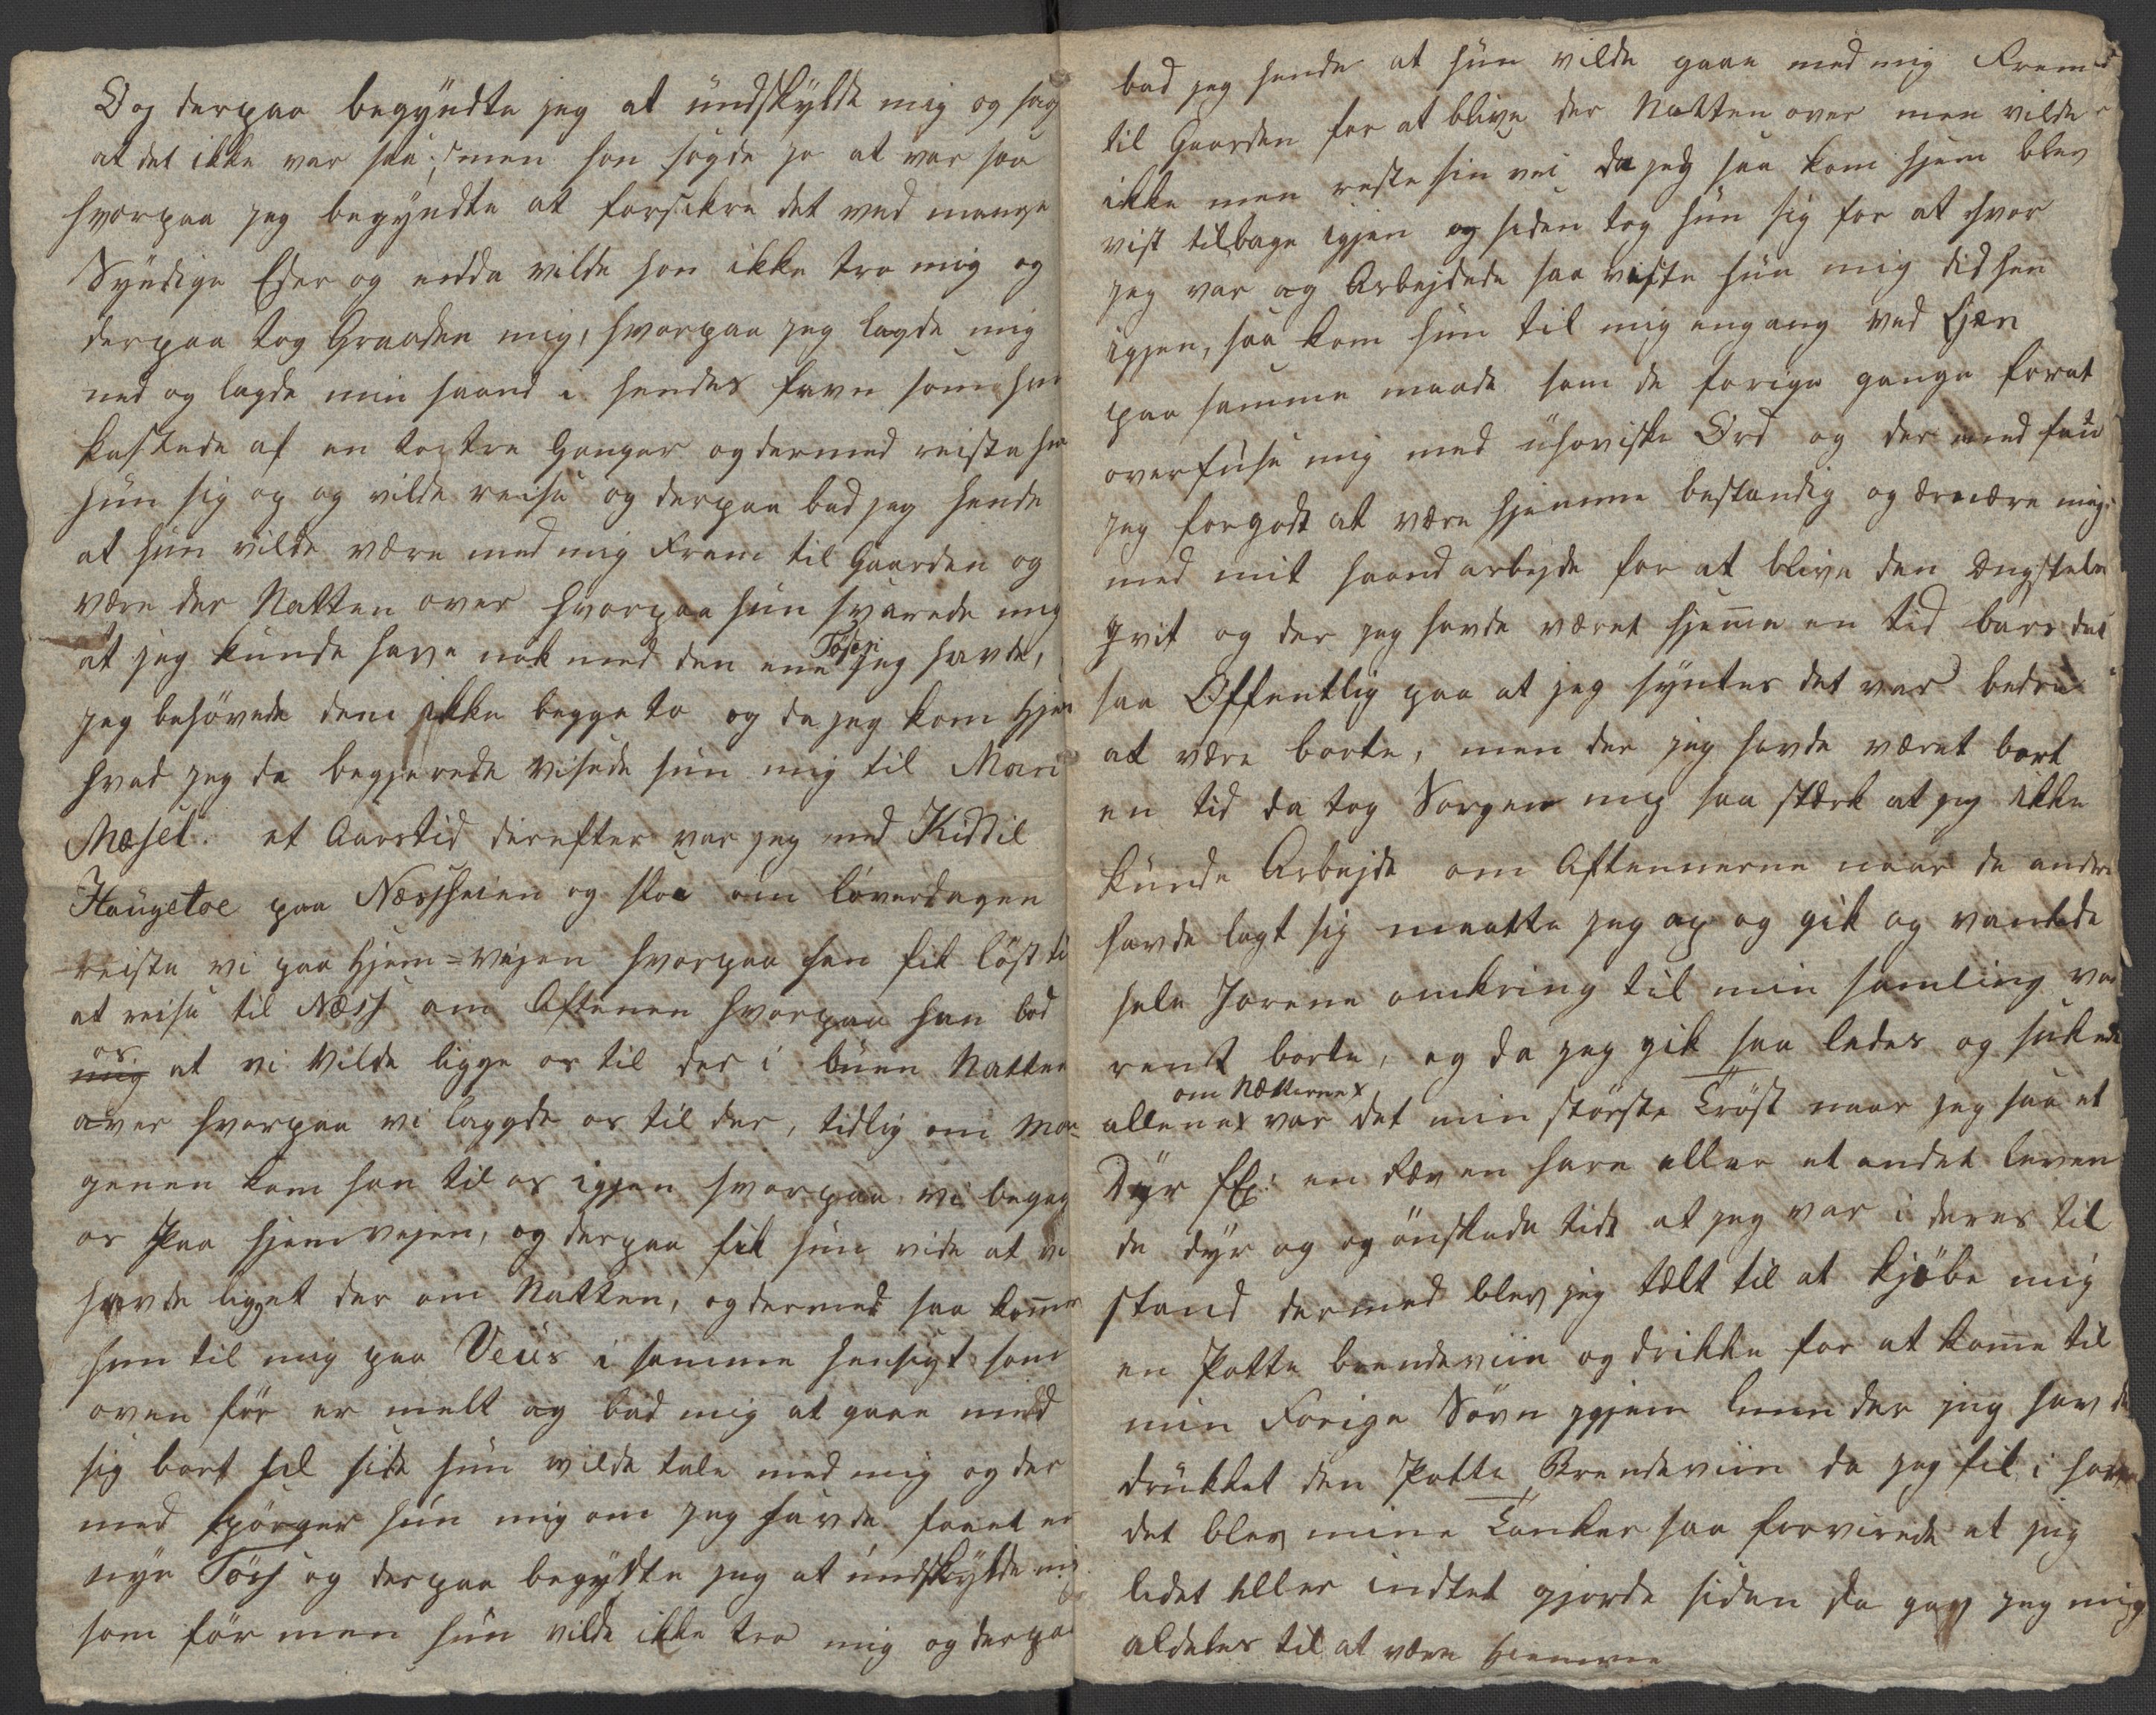 Og derpaa begyndte jeg at undskylde mig og sag
at det ikke var saa; men hon sagde jo at var saa
hvorpaa jeg begyndte at forsikre det ved mange
Syndige Eder og endda vilde hon ikke tro mig og
derpaa tog Graaden mig, hvorpaa jeg lagde mig
ned og lagde min haand i hendes favn som hun
kastede af en to tre Ganger og dermed reiste
hun sig op og vilde reise og derpaa bad jeg hende
at hun vilde være med mig Frem til Gaarden og
være der Natten over hvorpaa hun svarede mig
at jeg kunde have nok med den ene Tösen jeg havde,
jeg behövede dem ikke begge to og da jeg kom hjem
hvad jeg da begjerede viisde hun mig til Mari
Mæsel. et Aarstid derefter var jeg med Kittil
Haugetoe paa Næssheien og slog om löverdagen
reiste vi paa Hjem=vejen hvorpaa han fik löst til
at reise til Næss om Aftenen hvorpaa han bad
mig os at vi Vilde ligge os til der i buen Natten
over hvorpaa vi laggde os til der, tidlig om Mor=
genen kom han til os igjen hvorpaa vi begag
os Paa hjemvejen, og derpaa fik hun vide at vi
havde ligget der om Natten, og dermed saa kommer
hun til mig paa Veüs i samme hensigt som
oven för er melt og bad mig at gaae med
sig bort til side hun vilde tale med mig og der
med spörger hun mig om jeg havde faaet en
nye Töss og derpaa begyndte jeg at undskylde mig
som för men hun vilde ikke tro mig og derpaa
bad jeg hende at hun vilde gaae med mig Frem
til Gaarden for at blive der Natten over men vilde
ikke men reiste sin vei da jeg saa kom hjem blev
vist tilbage igjen og siden tog hun sig for at hvor
jeg var og Arbejdede saa viste hun mig did hen
igjen, saa kom hun til mig engang ved
paa samme maade som de forige gange forat
overfuse mig med uhoviske Ord og der med fan
jeg forgodt at være hjemme bestandig og ærnære mig
med mit haand arbejde for at blive den Ængstelse
qvit og der jeg havde været hjemme en tid bars det
saa Offentlig paa at jeg syntes det var bedre
at være borte, men der jeg havde været bort
en tid da tog Sorgen mig saa stærk at jeg ikke
kunde Arbejde om Aftennerne naar de andre
havde lagt sig maatte jeg op og gik og vankede
hele Jorene omkring til min samling var
rendt borte, og da jeg gik saa ledes og sukede
allene om Nætterne var det min störste Tröst naar jeg saa et
Dyr en Ræv en hare eller et andet leven
de dyr og og önskede tidt at jeg var i deres til
stand dermed blev jeg talt til at kjöbe mig
en Potte brendeviin og drikke for at kome til
min Forige Sövn igjen men der jeg havde
drukket den Potte Brendeviin da jeg fik i
det blev mine Tanker saa forvirede at jeg
lidet eller indtet gjorde siden da gav jeg mig
aldeles til at være hiemme